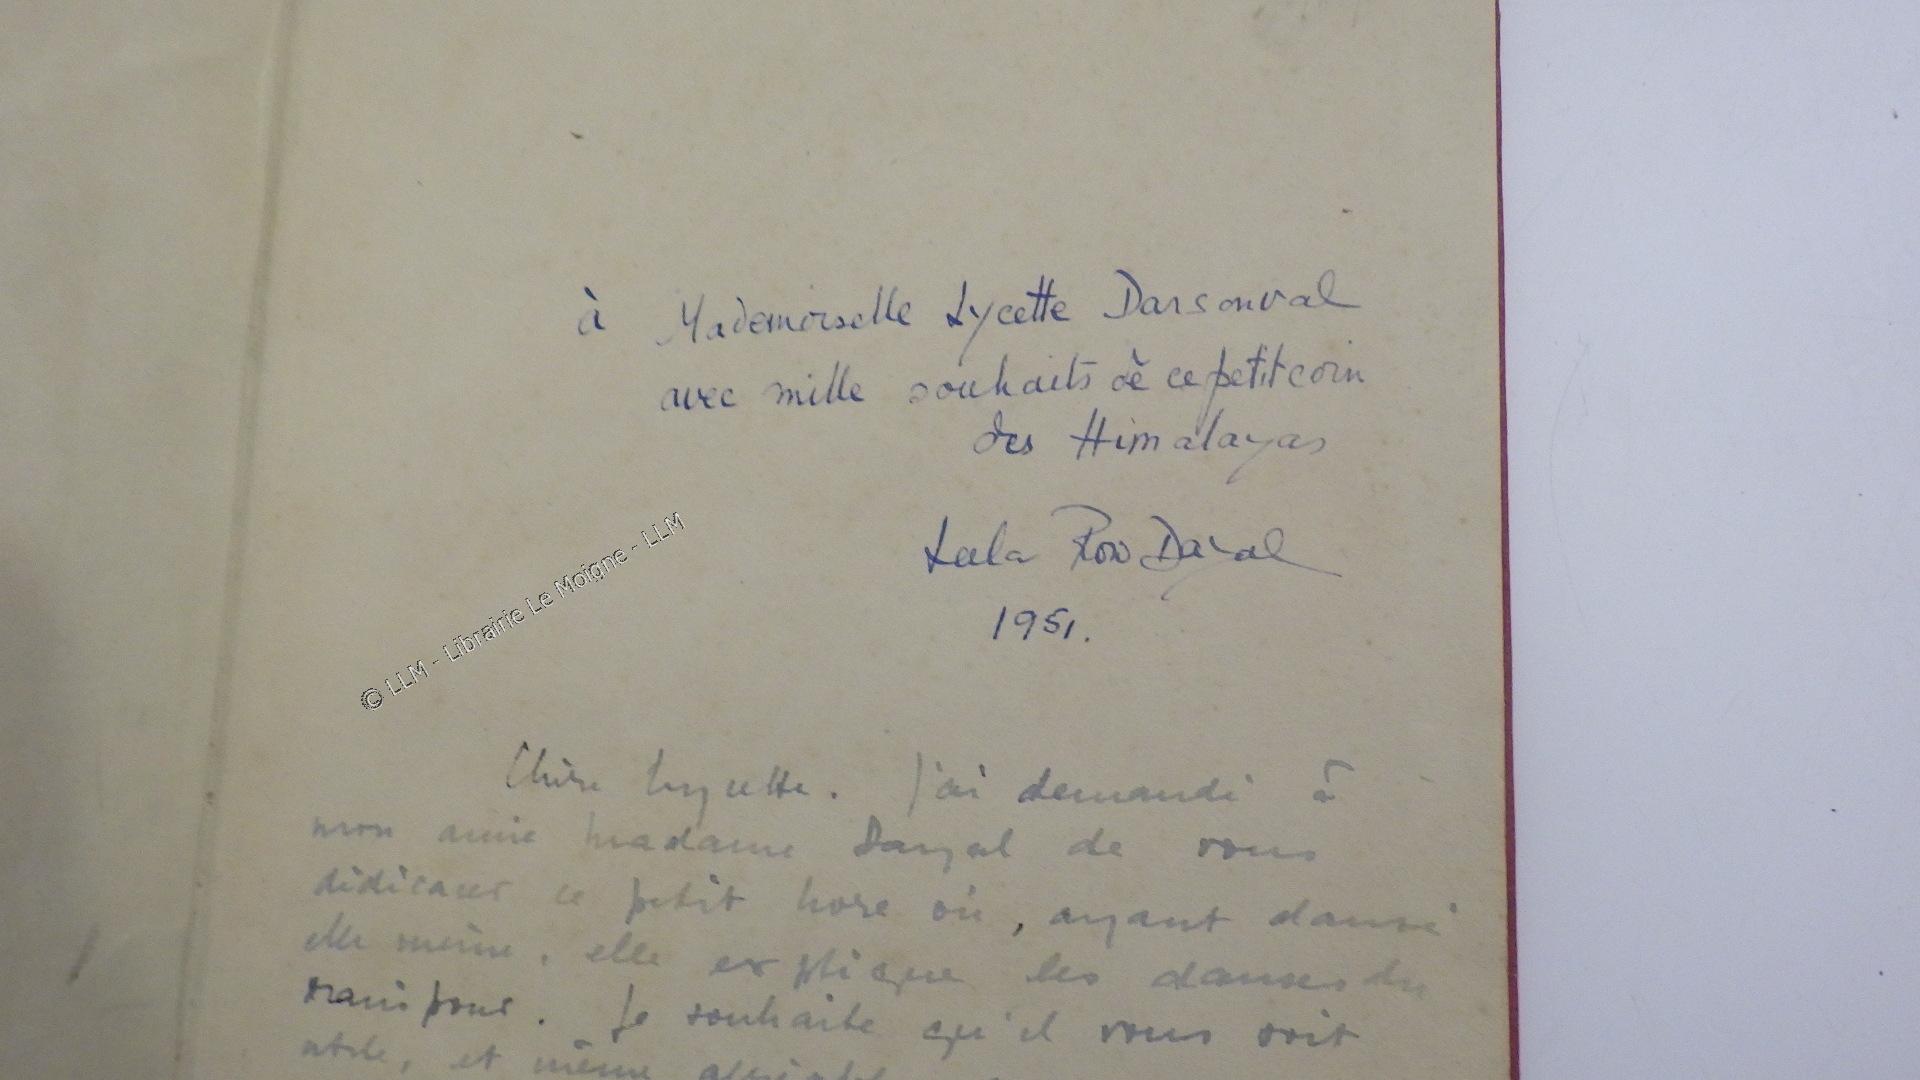 à Mademoiselle Lycette Darsonval
avec mille souhaits de ce petit coin
des Himalayas
Leela Row Dayal
1951.
© LLM - Librairie Le Moigne - LLM
Chère Lycette. J'ai demandé à
mon amie madame Dayal de vous
dédicacer ce petit livre où, ayant dansé
elle même, elle explique les danses du
Manipour. Je souhaite qu'il vous soit
utile, et même